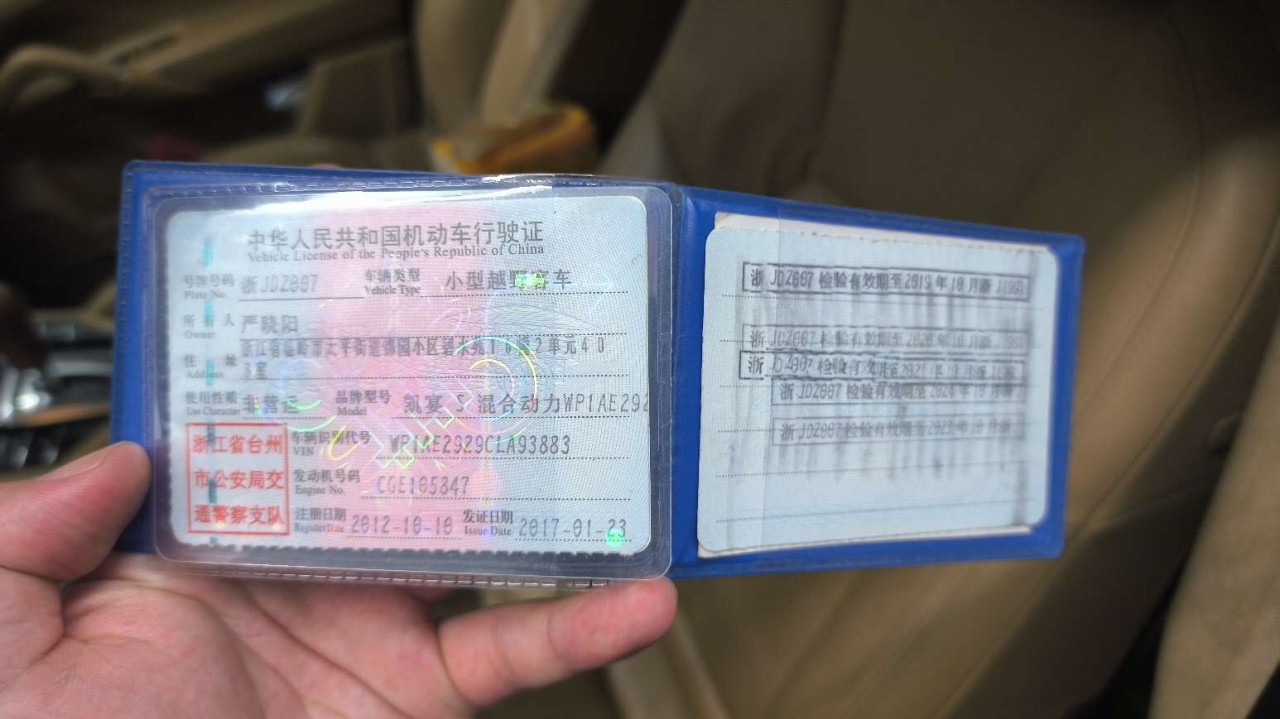 中华人民共和国机动车行驶证
Vehicle License of the People's Republic of China
号牌号码 浙JDZ007 车辆类型 小型越野客车
Plate No. Vehicle Type
所有人 严晓阳
Owner
浙江省临海市太平街道 小区 2单元40
住址
Address
使用性质 非营运 品牌型号 凯宴 S 混合动力WP1AE292
Use Character Model
浙江省台州 车辆识别代号 WP1AE2929CLA93883
VIN
市公安局交 发动机号码 CGE105847
Engine No.
通警察支队 注册日期 2012-10-10 发证日期 2017-01-23
Register Date Issue Date
浙 JDZ007 检验有效期至2019年10月浙J(99)
浙 JDZ007 检验有效期至2020年10月
浙 检验有效期至2021年
浙 JDZ007 检验有效期至2024年10月
浙 JDZ007 检验有效期至 年10月